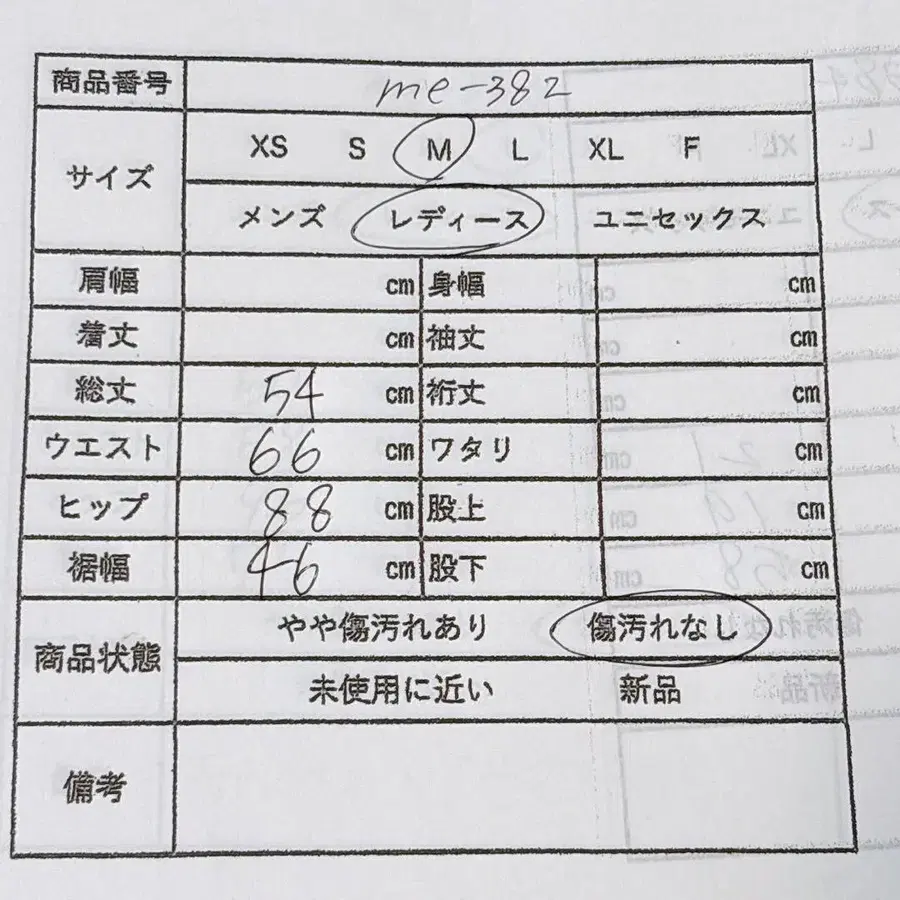 商品番号 me-382
サイズ XS S M L XL F
メンズ レディース ユニセックス
肩幅 cm 身幅 cm
着丈 cm 袖丈 cm
総丈 54 cm 裄丈 cm
ウエスト 66 cm ワタリ cm
ヒップ 88 cm 股上 cm
裾幅 46 cm 股下 cm
商品状態 やや傷汚れあり 傷汚れなし
未使用に近い 新品
備考